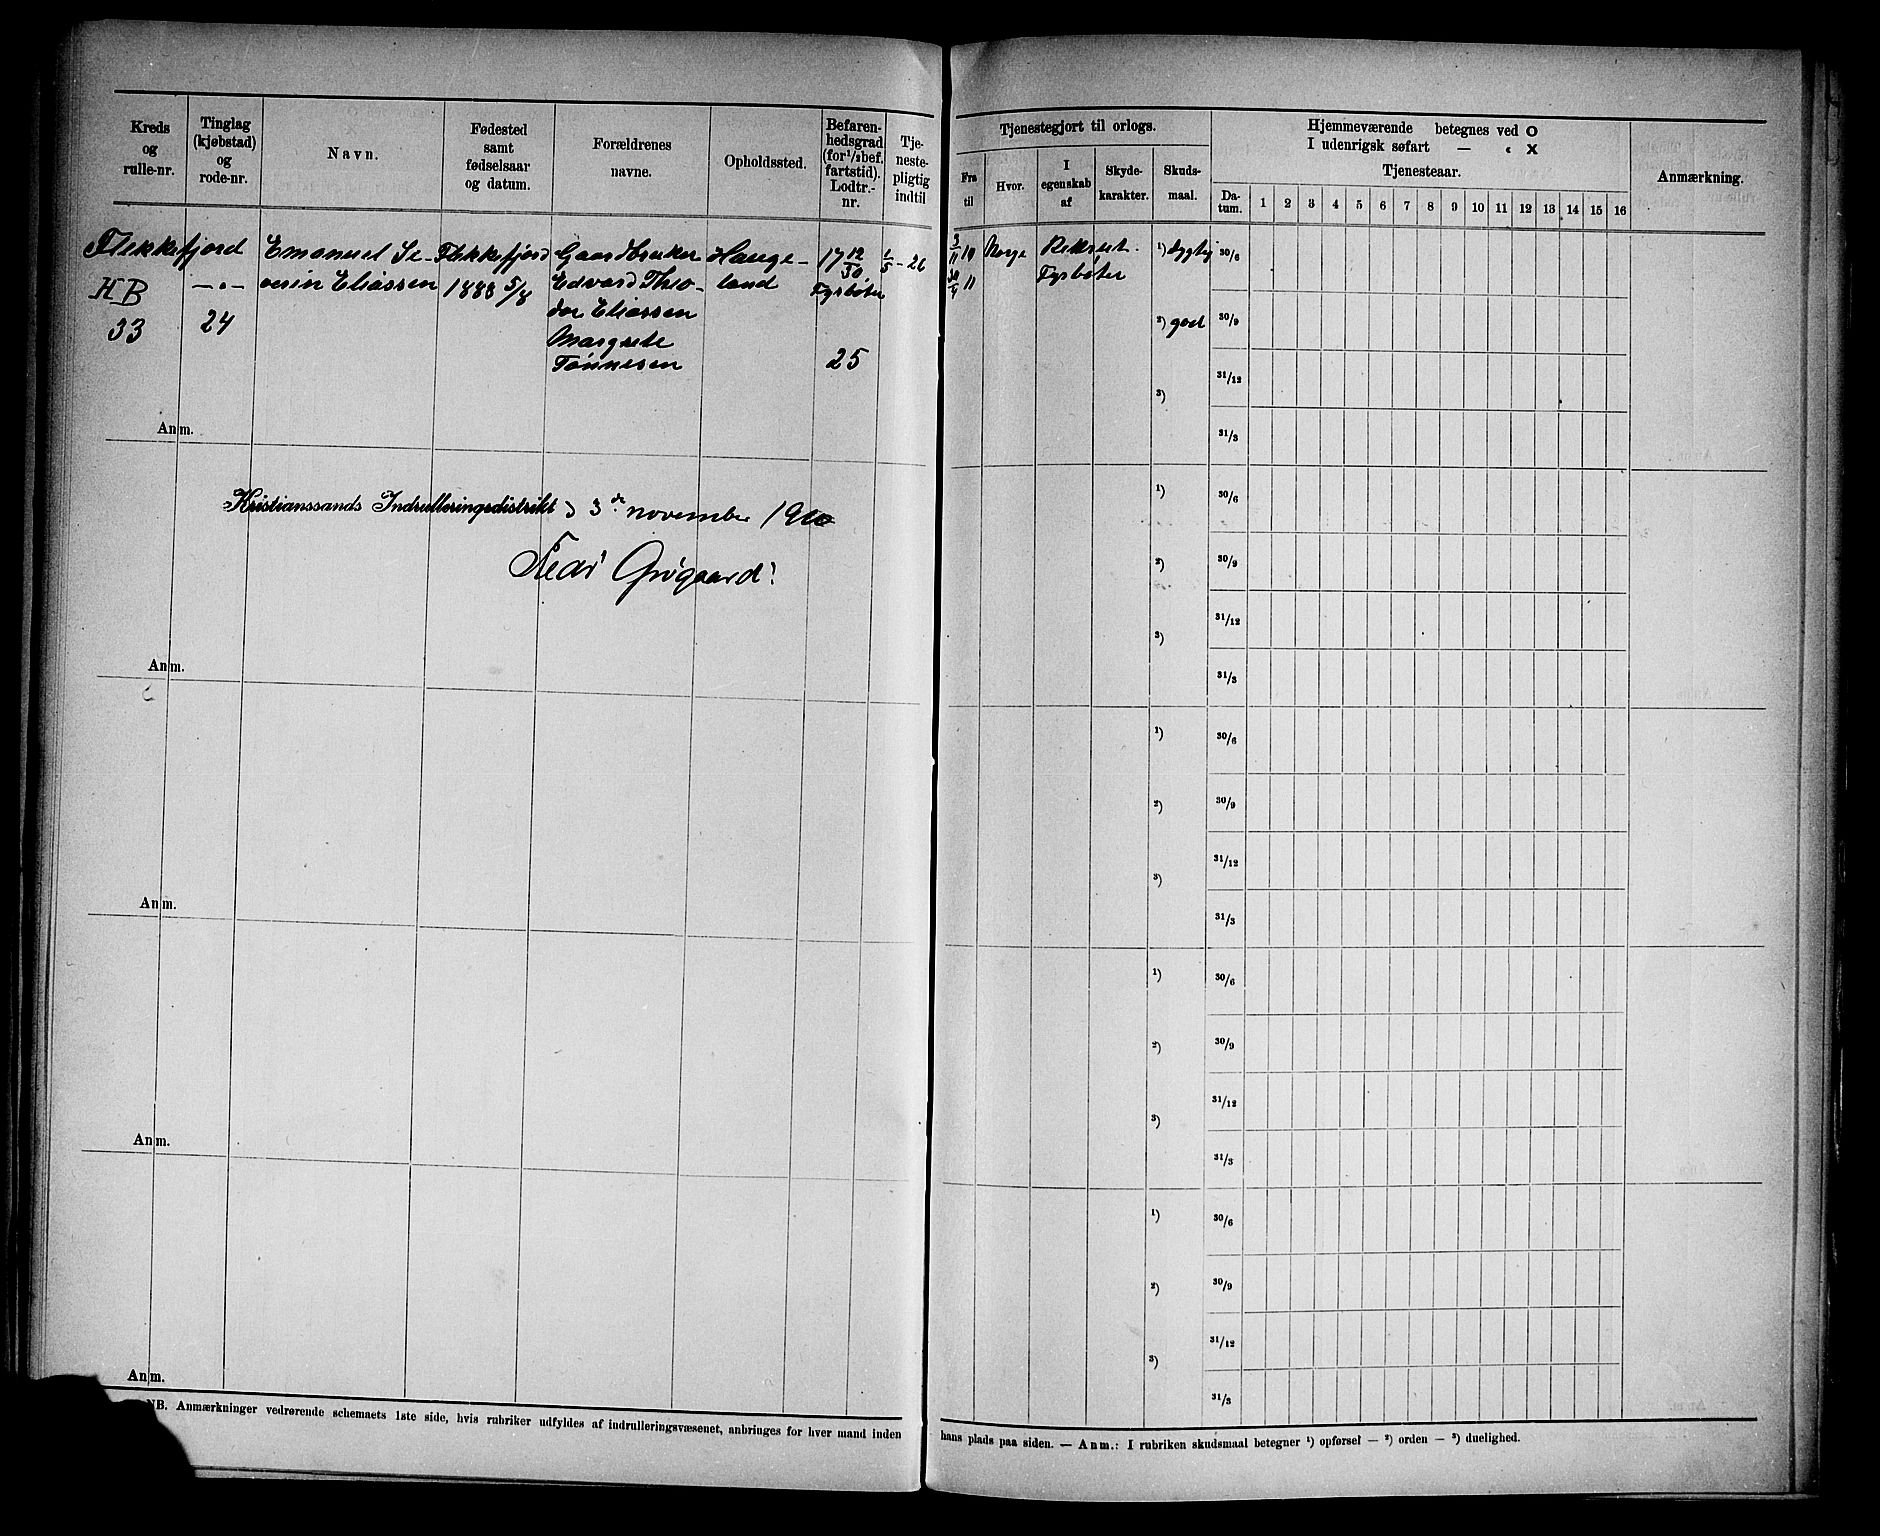 Kreds
og
rulle-nr.
Tinglag
(kjøbstad)
og
rode-nr.
Navn.
Fødested
samt
fødselsaar
og datum.
Forældrenes
navne.
Opholdssted.
Befaren-
hedsgrad
(for 1/1 bef.
fartstid).
Lodtr.-
nr.
Tje-
neste-
pligtig
indtil
Flekkefjord
HB
33
— " —
24
Emanuel Se-
verin Eliassen
Flekkefjord
1888 5/8
Gaardbruker
Edvard Theo-
dor Eliassen
Margrete
Tønnesen
Hauge-
land
17 12/30
Fyrbøter
25
1/5 - 26
Anm.
Kristianssands Indrulleringsdistrikt d 3de november 1910
Grøgaard
Anm.
Anm.
Anm.
Anm.
NB. Anmærkninger vedrørende schemaets 1ste side, hvis rubriker udfyldes af indrulleringsvæsenet, anbringes for hver mand inden
Tjenestegjort til orlogs.
Fra
til
Hvor.
I
egenskab
af
Skyde-
karakter.
Skuds-
maal.
Hjemmeværende betegnes ved O
I udenrigsk søfart — " X
Tjenesteaar.
Da-
tum.
1 2 3 4 5 6 7 8 9 10 11 12 13 14 15 16
Anmærkning.
3/11 10
30/4 11
Norge
Rekrut.
Fyrbøter
1) dygtig
2) god
3)
30/6
30/9
31/12
31/3
1)
2)
3)
30/6
30/9
31/12
31/3
1)
2)
3)
30/6
30/9
31/12
31/3
1)
2)
3)
30/6
30/9
31/12
31/3
1)
2)
3)
30/6
30/9
31/12
31/3
hans plads paa siden. — Anm.: I rubriken skudsmaal betegner 1) opførsel — 2) orden — 3) duelighed.